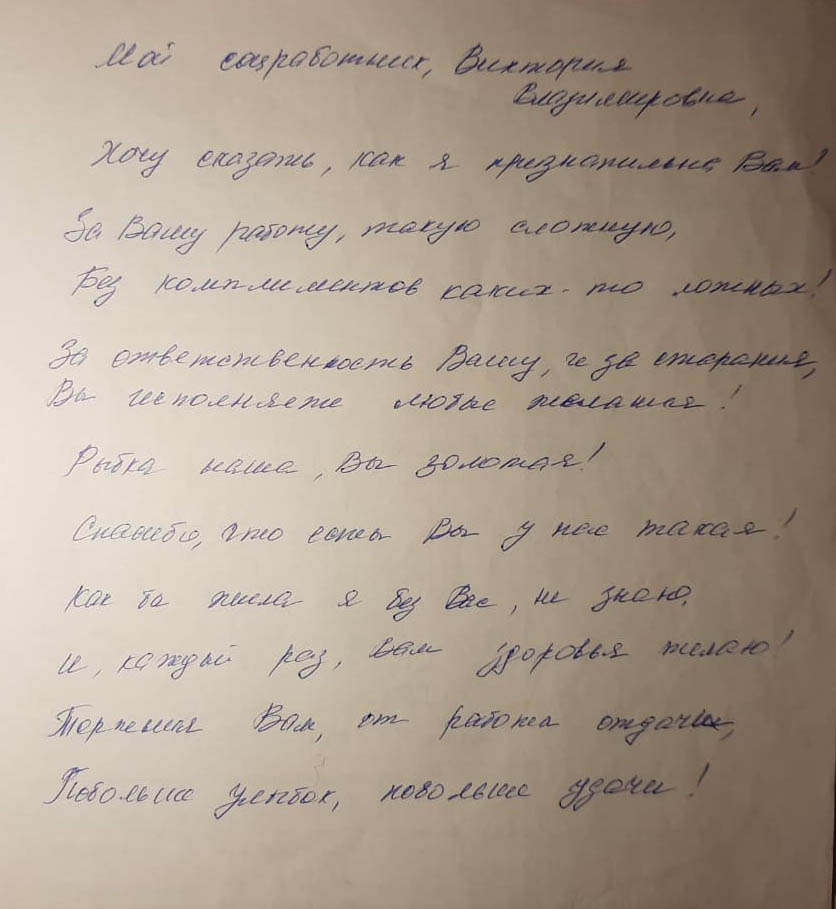 Мой соцработник, Виктория
Владимировна,
Хочу сказать, как я признательна Вам!
За Вашу работу, такую сложную,
Без комплиментов каких-то ложных!
За ответственность Вашу, и за старания,
Вы исполняете любые желания!
Рыбка наша, Вы золотая!
Спасибо, что есть Вы у нас такая!
Как бы жила я без Вас, не знаю,
И, каждый раз, Вам здоровья желаю!
Терпения Вам, от работы отдачи,
Побольше улыбок, побольше удачи!